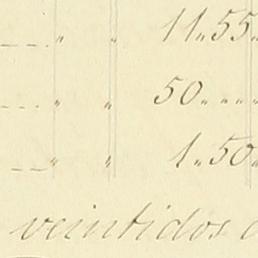 __. " " 11..55..
_... " " 50.....
__ " " 1..50..
veintidos d